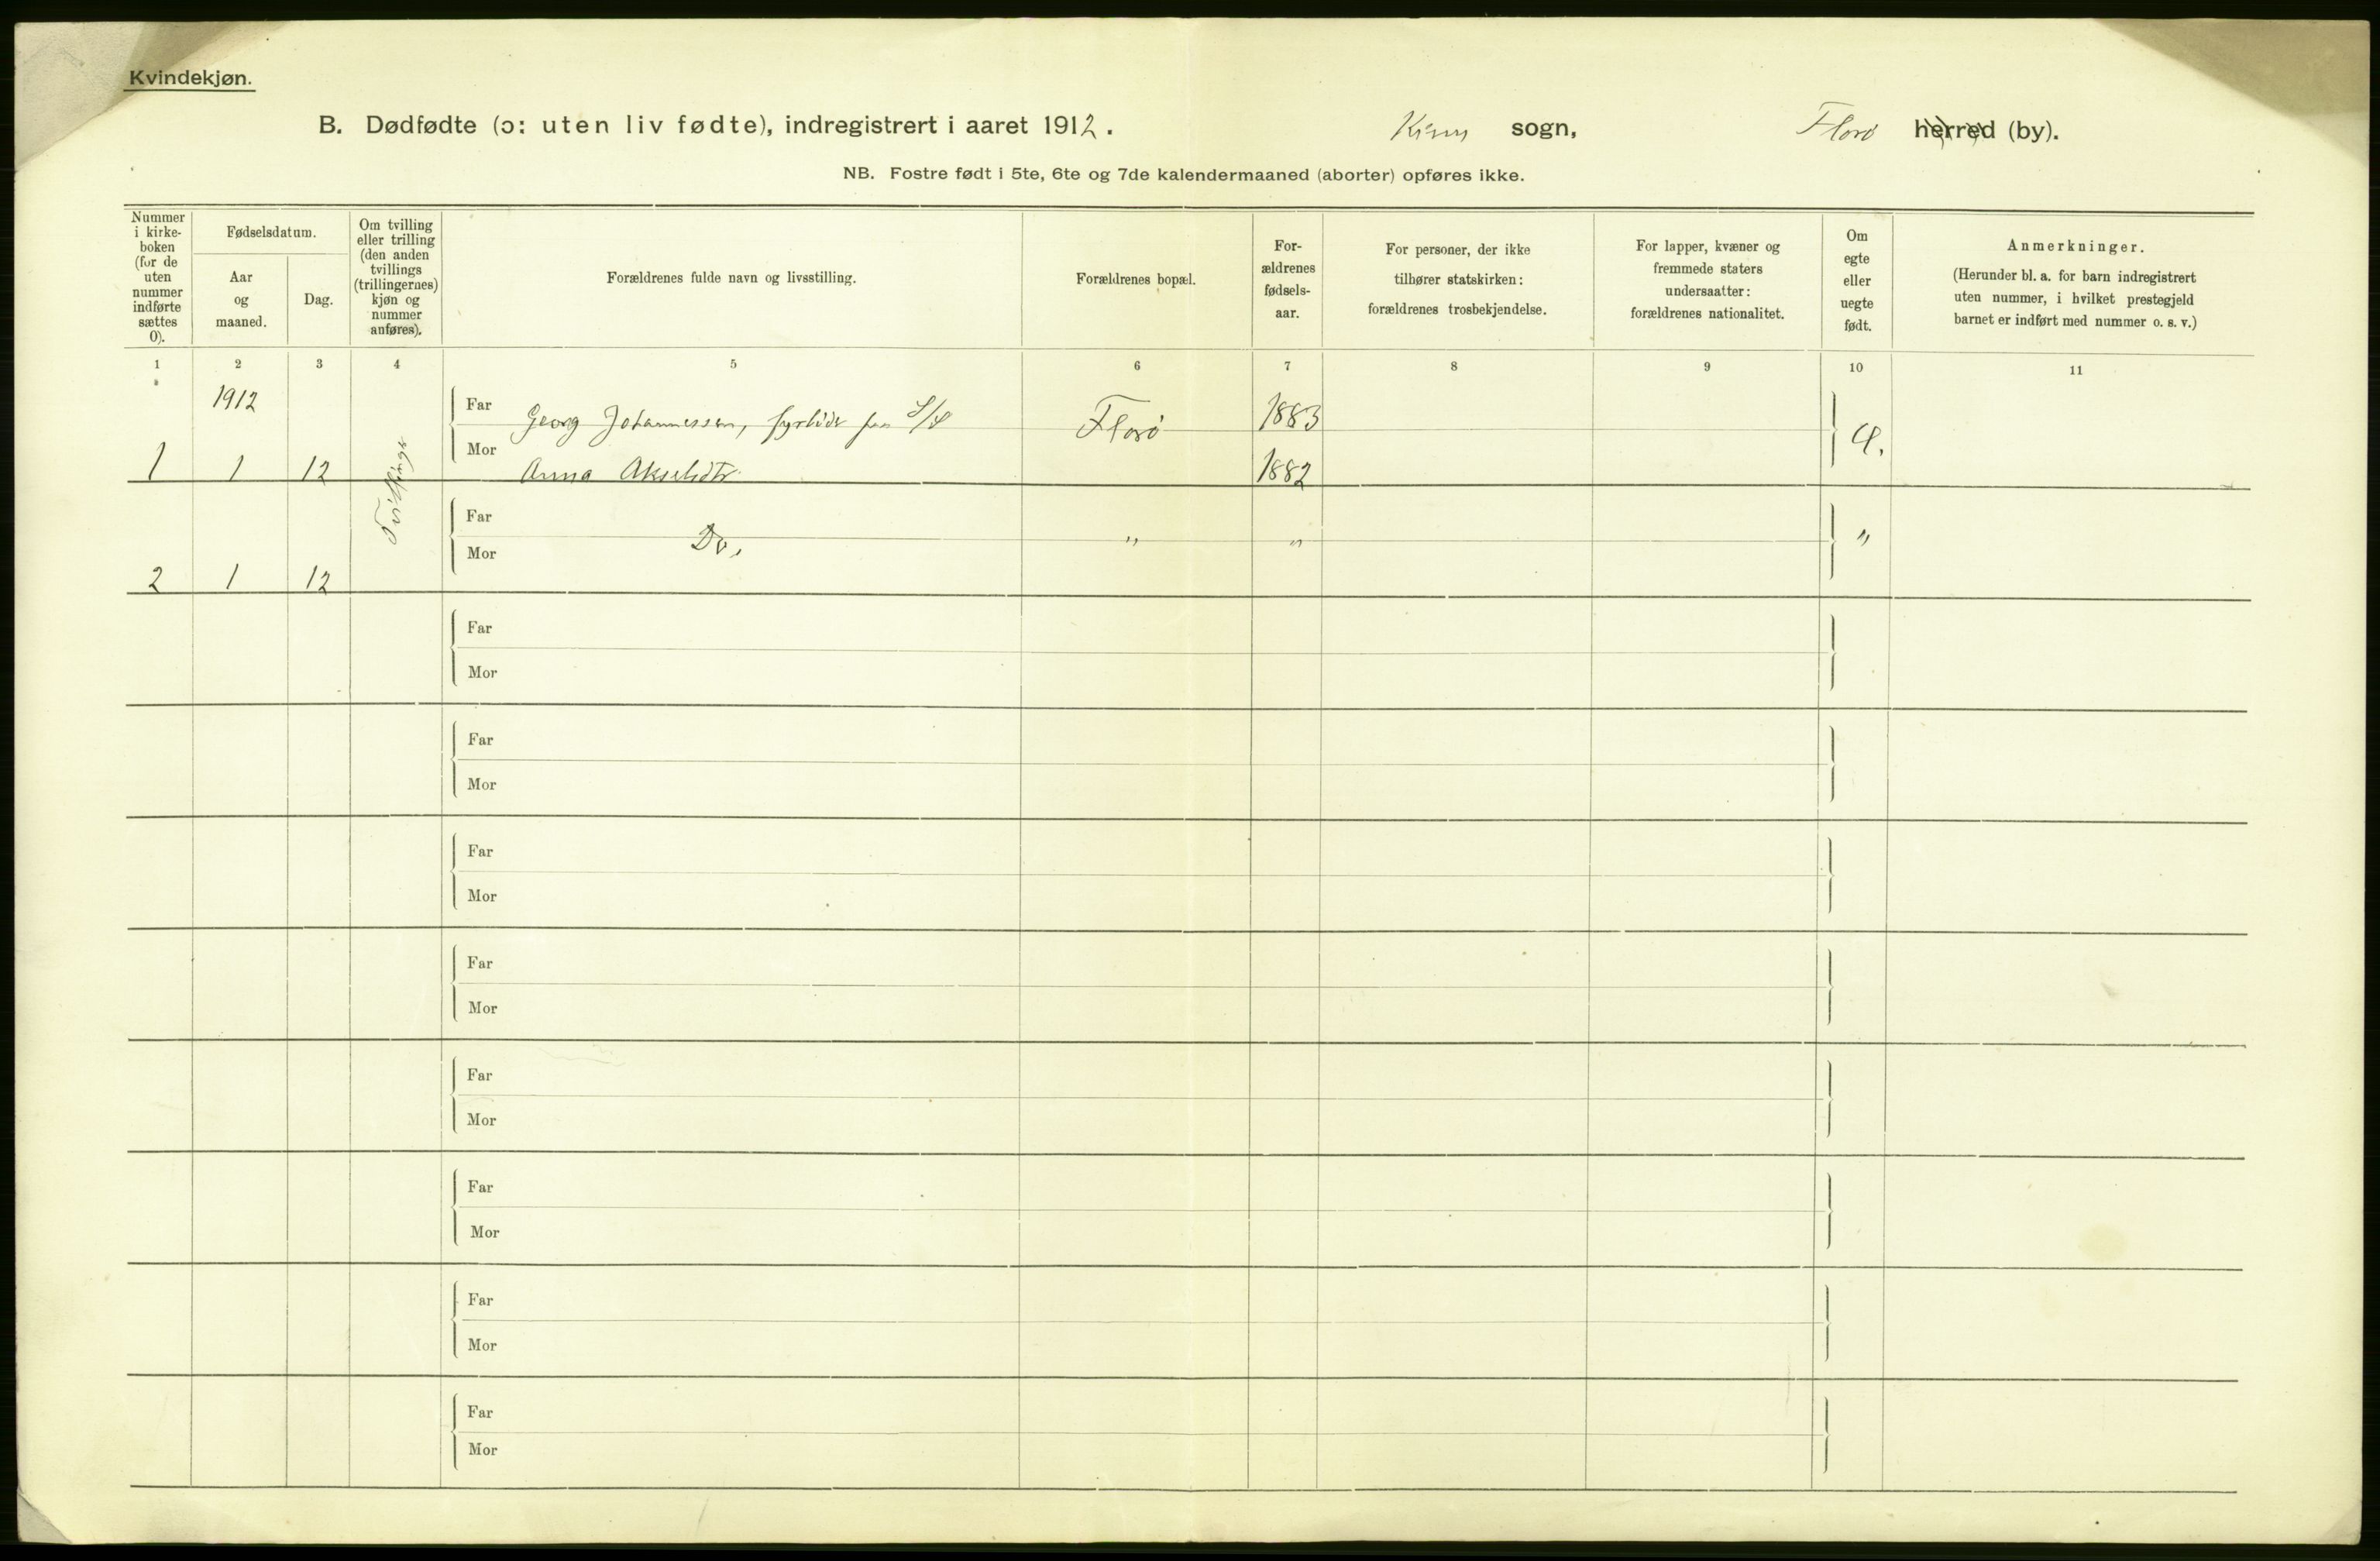 Kvindekjøn.
B. Dødfødte (ɔ: uten liv fødte), indregistrert i aaret 1912. Kinn sogn, Florø herred (by).
NB. Fostre født i 5te, 6te og 7de kalendermaaned (aborter) opføres ikke.
Nummer
i kirke-
boken
(for de
uten
nummer
indførte
sættes
0).
Fødselsdatum.
Aar
og
maaned.
Dag.
Om tvilling
eller trilling
(den anden
tvillings
(trillingernes)
kjøn og
nummer
anføres).
Forældrenes fulde navn og livsstilling.
Forældrenes bopæl.
For-
ældrenes
fødsels-
aar.
For personer, der ikke
tilhører statskirken:
forældrenes trosbekjendelse.
For lapper, kvæner og
fremmede staters
undersaatter:
forældrenes nationalitet.
Om
egte
eller
uegte
født.
Anmerkninger.
(Herunder bl. a. for barn indregistrert
uten nummer, i hvilket prestegjeld
barnet er indført med nummer o. s. v.)
1 2 3 4 5 6 7 8 9 10 11
1912
Far Georg Johannessen, fyrbøder paa Florø 1883
Mor
1 1 12 Anna Akselsdtr. 1882
Tvillinger
Far
Do. " " "
Mor
2 1 12
Far
Mor
Far
Mor
Far
Mor
Far
Mor
Far
Mor
Far
Mor
Far
Mor
Far
Mor